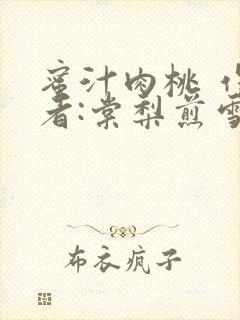 蜜汁肉桃
者:棠梨煎
布衣疯子